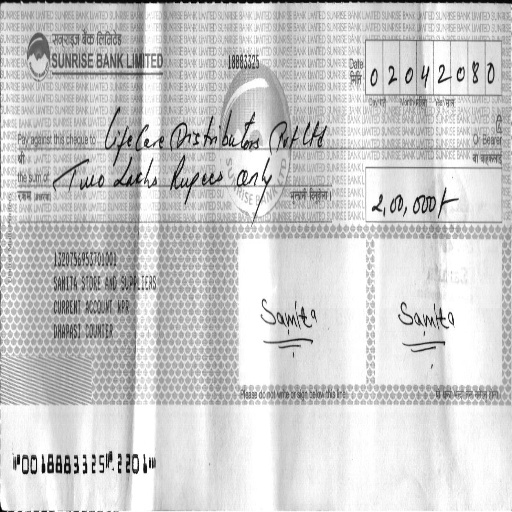 सनराइज बैंक लिमिटेड
SUNRISE BANK LIMITED
18883325
Date
मिति
0 2 0 4 2 0 8 0
Pay against this cheque to LifeCare Distributors Pvt Ltd
Or Bearer
श्री
the sum of Two Lakhs Rupees only
2,00,000/-
1320756953701001
SAMITA STORE AND SUPPLIERS
CURRENT ACCOUNT NPR
DHAPASI COUNTER
Samita
Samita
Please do not write or sign below this line
"0018883325".2201"